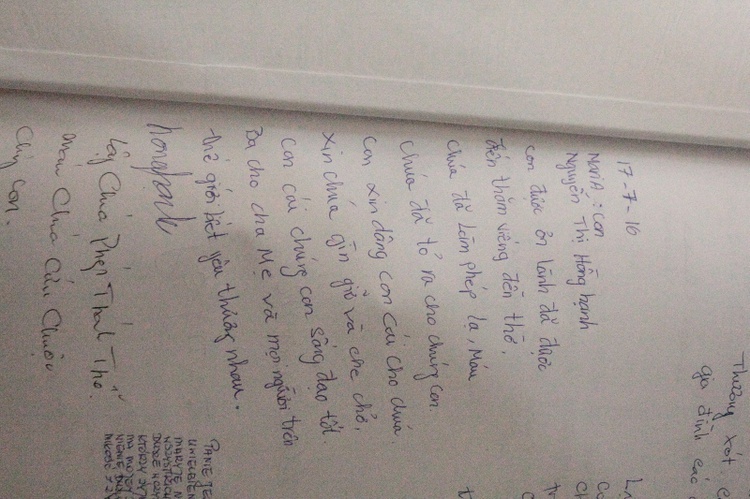 Thương xót
gia đình các
17-7-16
MariA : Con
Nguyễn Thị Hồng hạnh
con được ơn lành đã được
đến thăm viếng đền thờ.
chúa đã làm phép lạ, Máu
chúa đã tỏ ra cho chúng con
con xin dâng con cái cho chúa.
xin chúa gìn giữ và che chở,
con cái chúng con sống đạo tốt.
Ba cho cha Mẹ và mọi người trên
thế giới biết yêu thương nhau.
Lạy Chúa Phép Thánh Thể.
Máu Chúa Cứu Chuộc
Chúng con.
PANIE